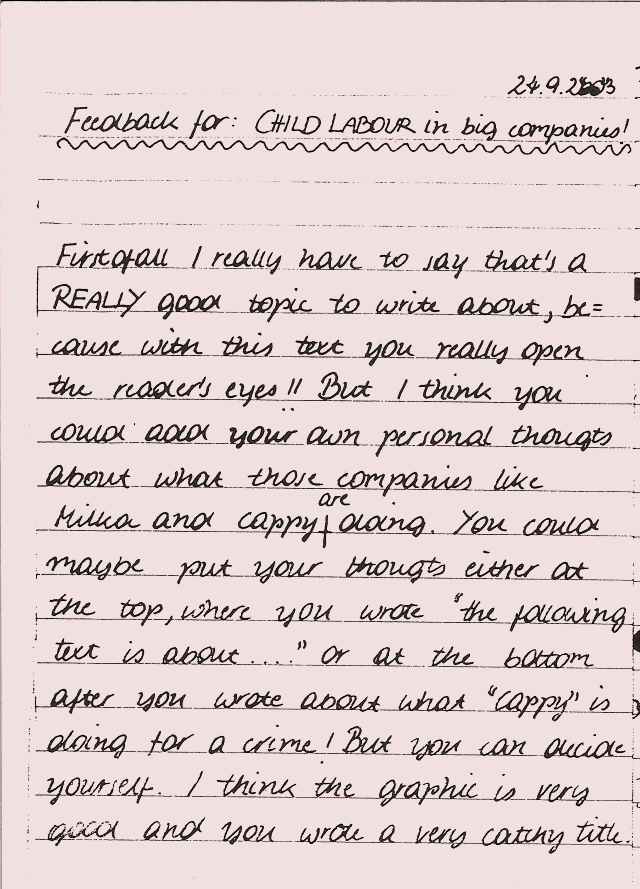 24.9.2003
Feedback for: CHILD LABOUR in big companies!
First of all I really have to say that's a
REALLY good topic to write about, be=
cause with this text you really open
the reader's eyes!! But I think you
could add your own personal thougts
about what those companies like
are
Milka and cappy doing. You could
maybe put your thougts either at
the top, where you wrote "the following
text is about ...." or at the bottom
after you wrote about what "cappy" is
doing for a crime! But you can decide
yourself. I think the graphic is very
good and you wrote a very catchy title.